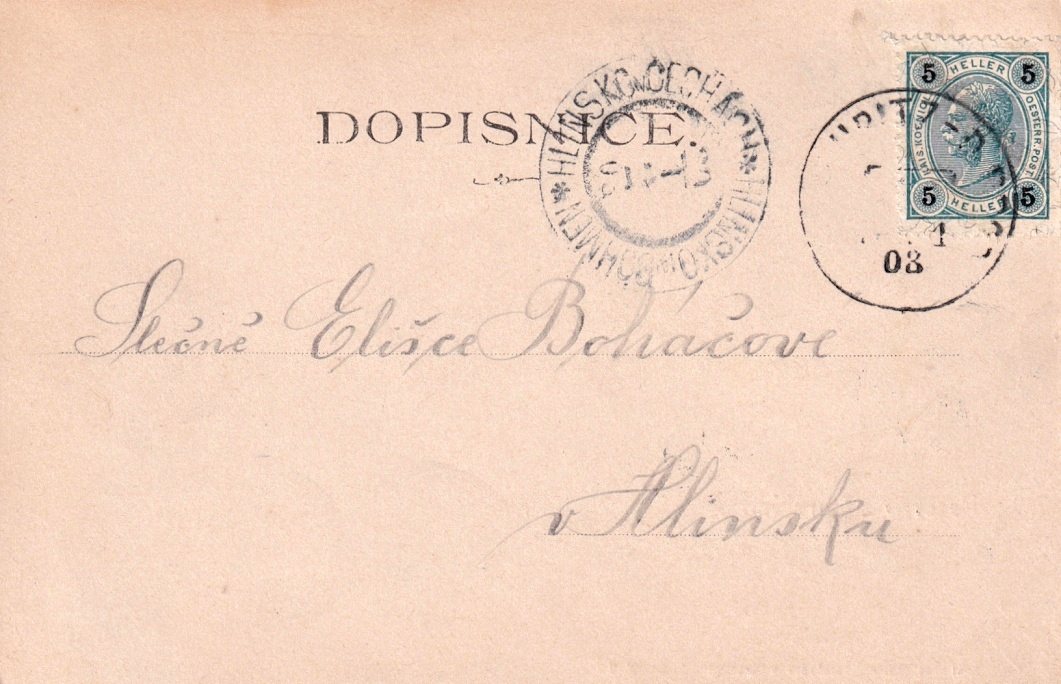 DOPISNICE.
* HLINSKO V ČECHÁCH * HLINSKO in BÖHMEN
5 HELLER 5
KAIS. KOENIGL. OESTERR. POST
5 HELLER 5
1
03
Slečně Elišce Boháčove
v Hlinsku